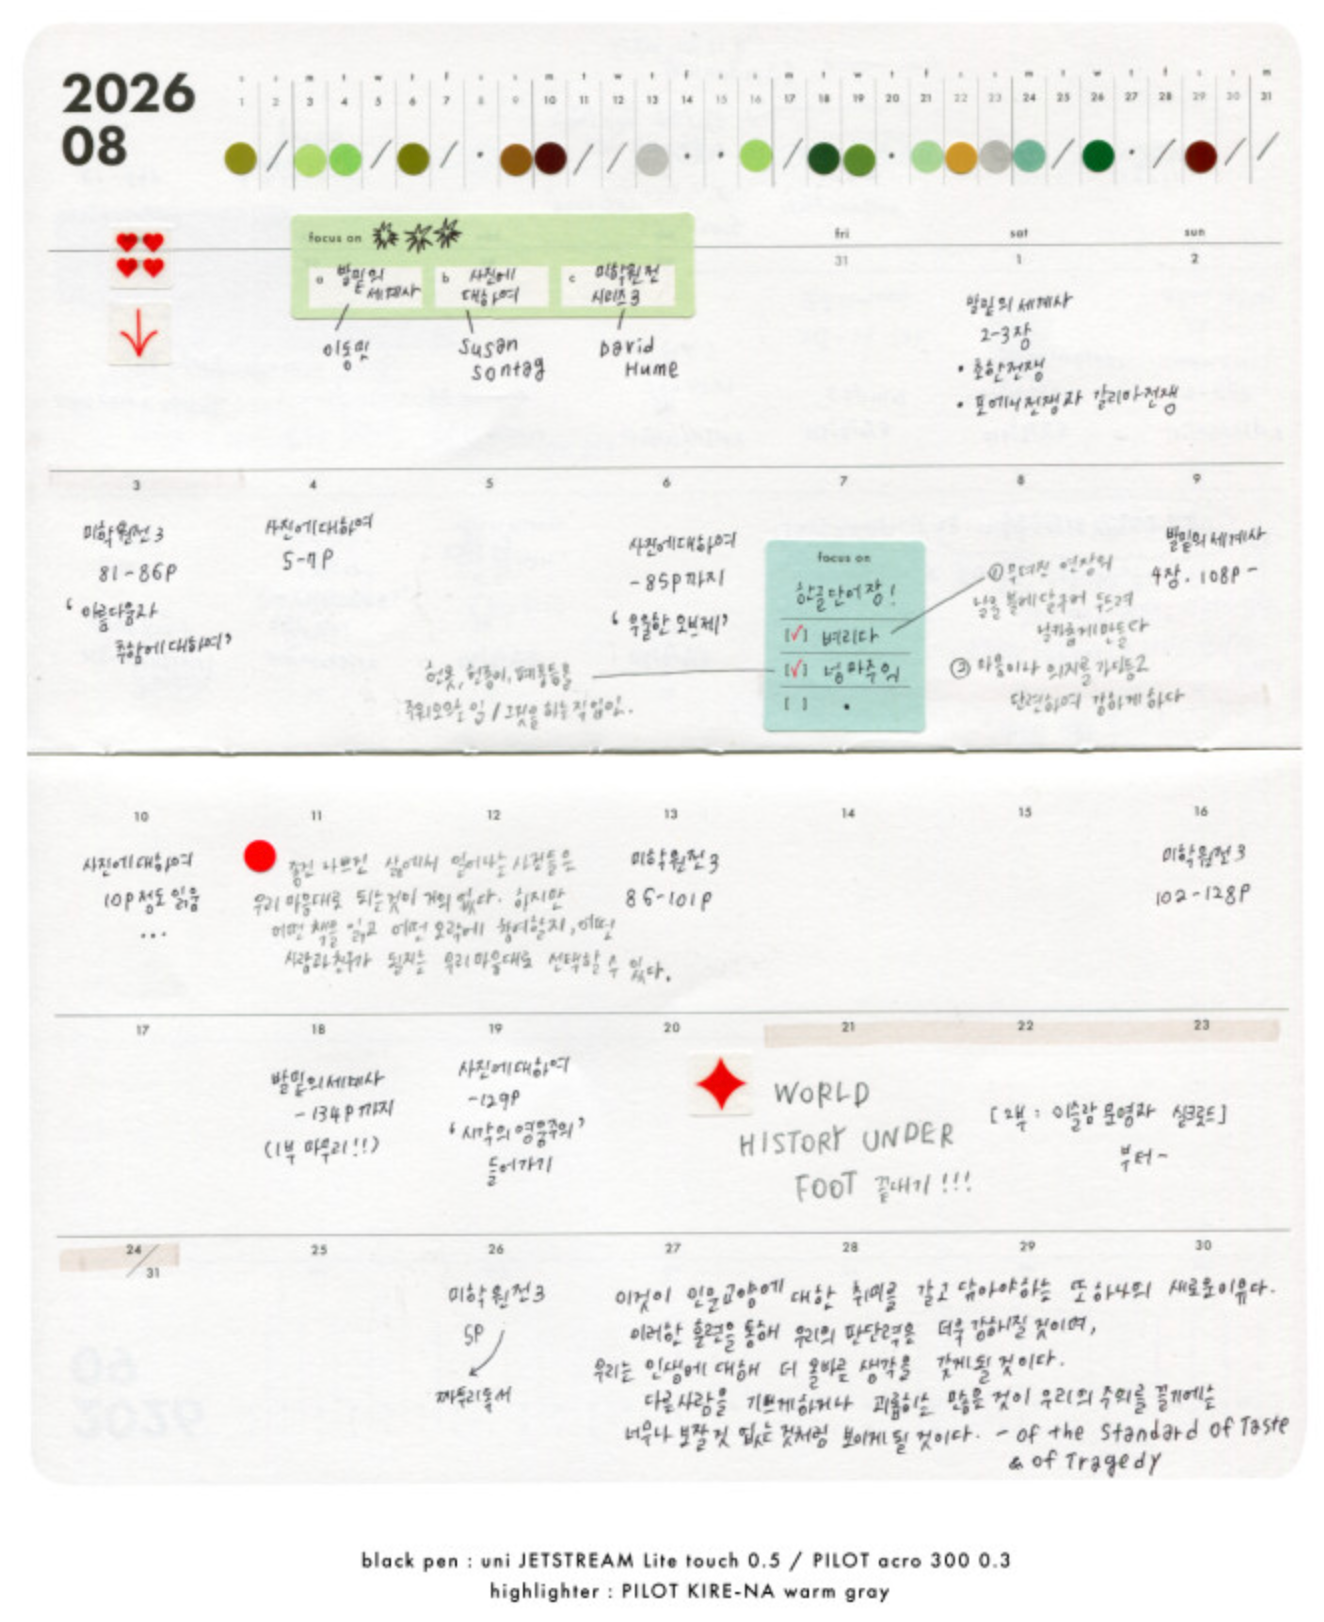 2026
08
s s m t w t f s s m t w t f s s m t w t f s s m t w t f s s m
1 2 3 4 5 6 7 8 9 10 11 12 13 14 15 16 17 18 19 20 21 22 23 24 25 26 27 28 29 30 31
focus on
a 발밑의 세계사
b 사진에 대하여
c 미학원전 시리즈 3
이동민
Susan Sontag
David Hume
fri sat sun
31 1 2
발밑의 세계사
2-3장
• 흉한전쟁
• 포에니전쟁과 갈리아전쟁
3 4 5 6 7 8 9
미학원전 3
81-86p
‘아름다움과
추함에 대하여’
사진에대하여
5-7p
사진에대하여
-85p까지
‘우울한 오브제’
focus on
한글단어장!
[✓] 벼리다
[✓] 넝마주의
[ ] •
헌옷, 헌종이, 폐품등을
주워모으는 일 / 그것을 하는 직업인.
① 무뎌진 연장의
날을 불에달구어 두드려
날카롭게만들다
② 마음이나 의지를 가다듬고
단련하여 강하게하다
발밑의 세계사
4장. 108p-
10 11 12 13 14 15 16
사진에대하여
10p정도 읽음
...
좋건 나쁘건 삶에서 일어나는 사건들은
우리 마음대로 되는것이 거의 없다. 하지만
어떤 책을 읽고 어떤 오락에 참여할지, 어떤
사람과친구가 될지는 우리마음대로 선택할 수 있다.
미학원전3
86-101p
미학원전 3
102-128p
17 18 19 20 21 22 23
발밑의세계사
-134p까지
(1부 마무리!!)
사진에대하여
-129p
‘시각의 영웅주의’
들어가기
WORLD
HISTORY UNDER
FOOT 끝내기!!!
[2부: 이슬람 문명과 실크로드]
부터~
24/31 25 26 27 28 29 30
미학원전3
5p
짜투리독서
이것이 인문교양에 대한 취미를 갈고 닦아야하는 또하나의 새로운이유다.
이러한 훈련을 통해 우리의 판단력은 더욱 강해질 것이며,
우리는 인생에 대해 더 올바른 생각을 갖게될 것이다.
다른사람을 기쁘게하거나 괴롭히는 많은 것이 우리의 주의를 끌기에는
너무나 보잘것 없는 것처럼 보이게될 것이다. - of the Standard of Taste
& of Tragedy
black pen : uni JETSTREAM Lite touch 0.5 / PILOT acro 300 0.3
highlighter : PILOT KIRE-NA warm gray